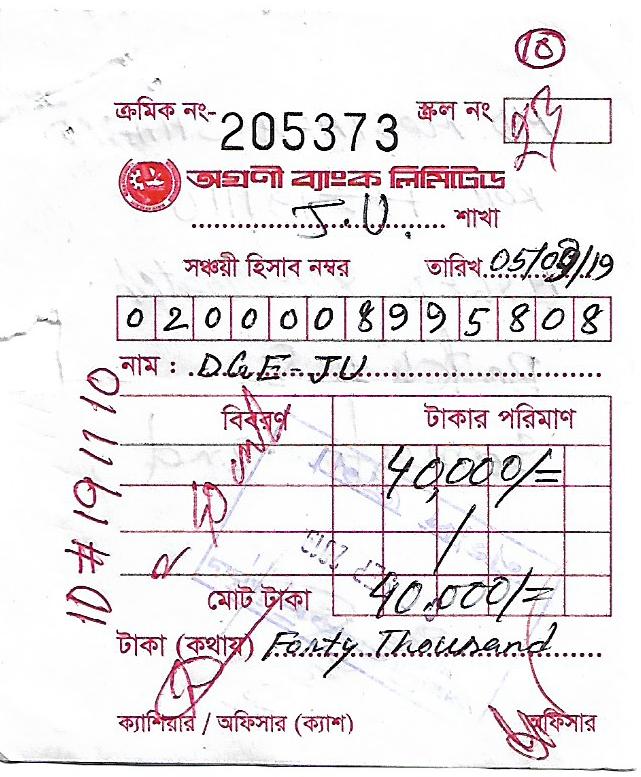 10
ক্রমিক নং- 205373 স্ক্রল নং
অগ্রণী ব্যাংক লিমিটেড
J.U. শাখা
সঞ্চয়ী হিসাব নম্বর তারিখ 05/09/19
0200008995808
নাম : DGE-JU
বিবরণ টাকার পরিমাণ
40,000/=
মোট টাকা 40,000/=
টাকা (কথায়) Forty Thousand
ক্যাশিয়ার / অফিসার (ক্যাশ) অফিসার
ID # 191110